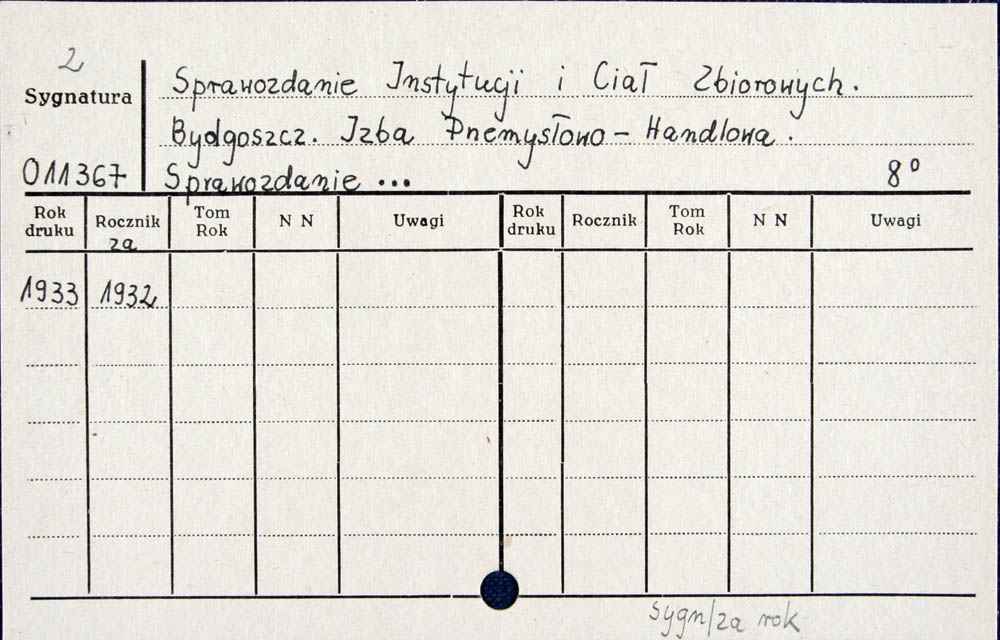 2
Sprawozdanie Instytucji i Ciał Zbiorowych.
Sygnatura
Bydgoszcz. Izba Przemysłowo-Handlowa.
011367 Sprawozdanie ... 8°
Rok druku Rocznik za Tom Rok N N Uwagi Rok druku Rocznik Tom Rok N N Uwagi
1933 1932
sygn/za rok